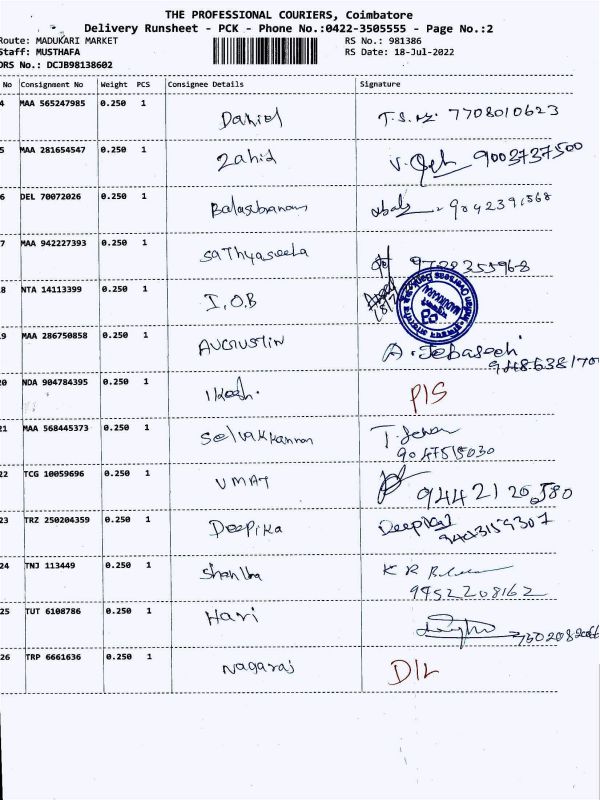 THE PROFESSIONAL COURIERS, Coimbatore
Delivery Runsheet - PCK - Phone No.:0422-3505555 - Page No.:2
Route: MADUKARI MARKET RS No.: 981386
Staff: MUSTHAFA RS Date: 18-Jul-2022
DRS No.: DCJB98138602
No Consignment No Weight PCS Consignee Details Signature
4 MAA 565247985 0.250 1 Daniel 7708010623
5 MAA 281654547 0.250 1 Zahid 9003737500
6 DEL 70072026 0.250 1 Balasubramani 9042391568
7 MAA 942227393 0.250 1 Sathyaseela
8 NTA 14113399 0.250 1 I.O.B
9 MAA 286750858 0.250 1 AUGUSTIN
20 NDA 904784395 0.250 1 PIS
21 MAA 568445373 0.250 1 Selvakkannan
9047515030
22 TCG 10059696 0.250 1 UMAT 9442120580
23 TRZ 250204359 0.250 1 Deepika
24 TNJ 113449 0.250 1
9952208162
25 TUT 6108786 0.250 1 Hari
26 TRP 6661636 0.250 1 Nagaraj D/L